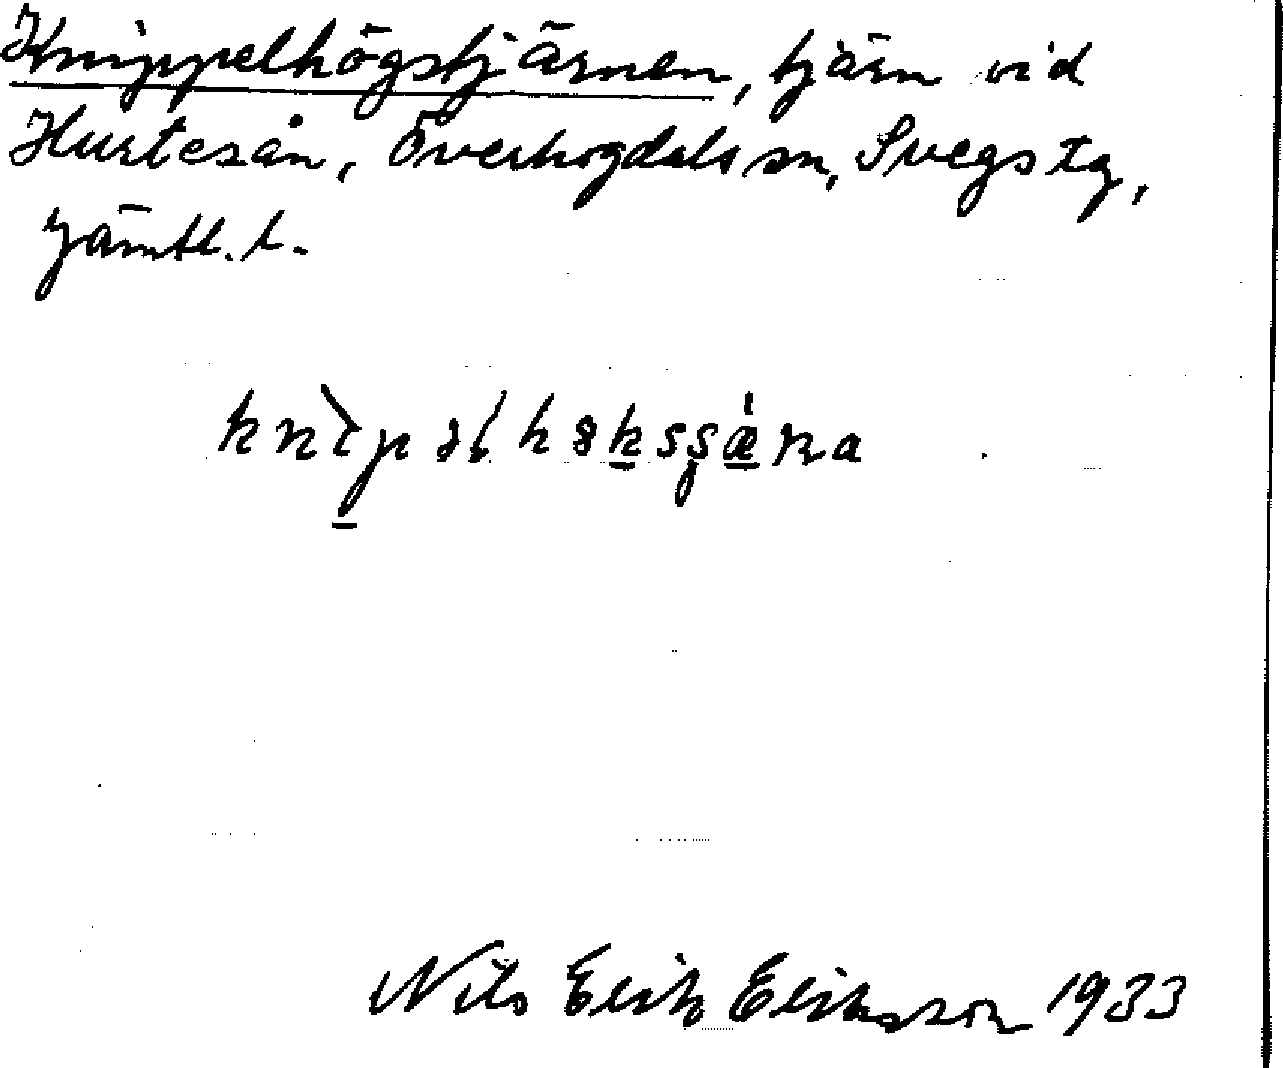 Knippelhögstjärnen, tjärn vid
Hurtesån, Överhogdals sn, Svegs tg,
Jämtl. l.
Nils Erik Eriksson 1933